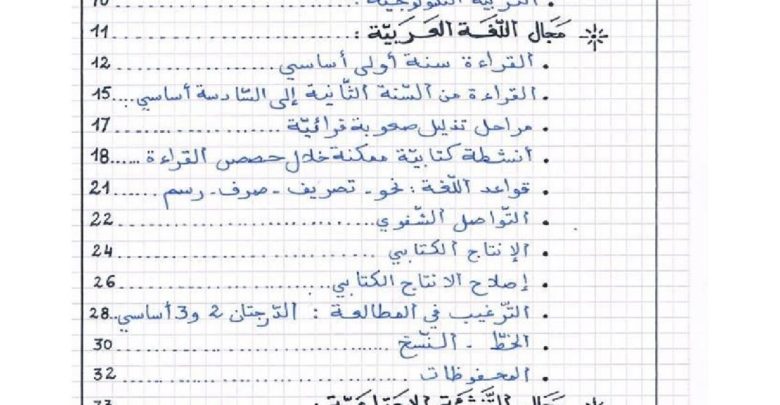 التربية التكنولوجية : ........ 10
مجال اللّغة العربيّة : ........ 11
. القراءة سنة أولى أساسي ........ 12
. القراءة من السّنة الثّانية إلى السّادسة أساسي .... 15
. مراحل تذليل صعوبة قرائيّة ........ 17
. أنشطة كتابيّة ممكنة خلال حصص القراءة ...... 18
. قواعد اللّغة : نحو - تصريف - صرف - رسم ...... 21
. التّواصل الشّفوي ........ 22
. الإنتاج الكتابي ........ 24
. إصلاح الانتاج الكتابي ........ 26
. التّرغيب في المطالعة : الدّرجتان 2 و 3 أساسي .. 28
. الخطّ - النّسخ ........ 30
. المحفوظات ........ 32
مجال التّنشئة الاجتماعيّة : ........ 33